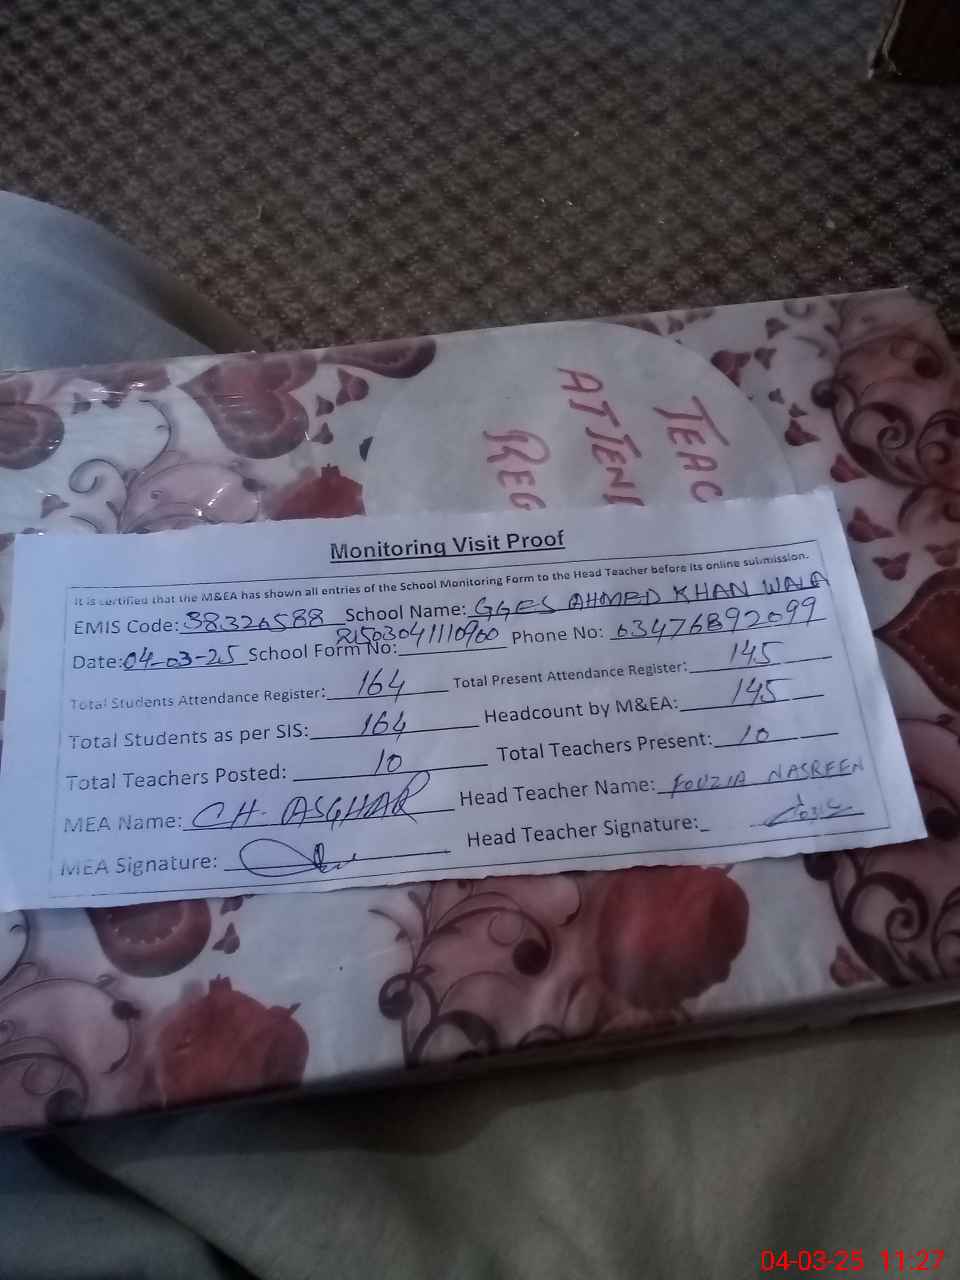 TEAC
ATTEN
REG
Monitoring Visit Proof
It is certified that the M&EA has shown all entries of the School Monitoring Form to the Head Teacher before its online submission.
EMIS Code: 38326588 School Name: GGES AHMED KHAN WALA
Date: 04-03-25 School Form No: R1503041110900 Phone No: 03476892099
Total Students Attendance Register: 164 Total Present Attendance Register: 145
Total Students as per SIS: 164 Headcount by M&EA: 145
Total Teachers Posted: 10 Total Teachers Present: 10
MEA Name: CH. ASGHAR Head Teacher Name: FOUZIA NASREEN
MEA Signature: Head Teacher Signature:
04-03-25 11:27